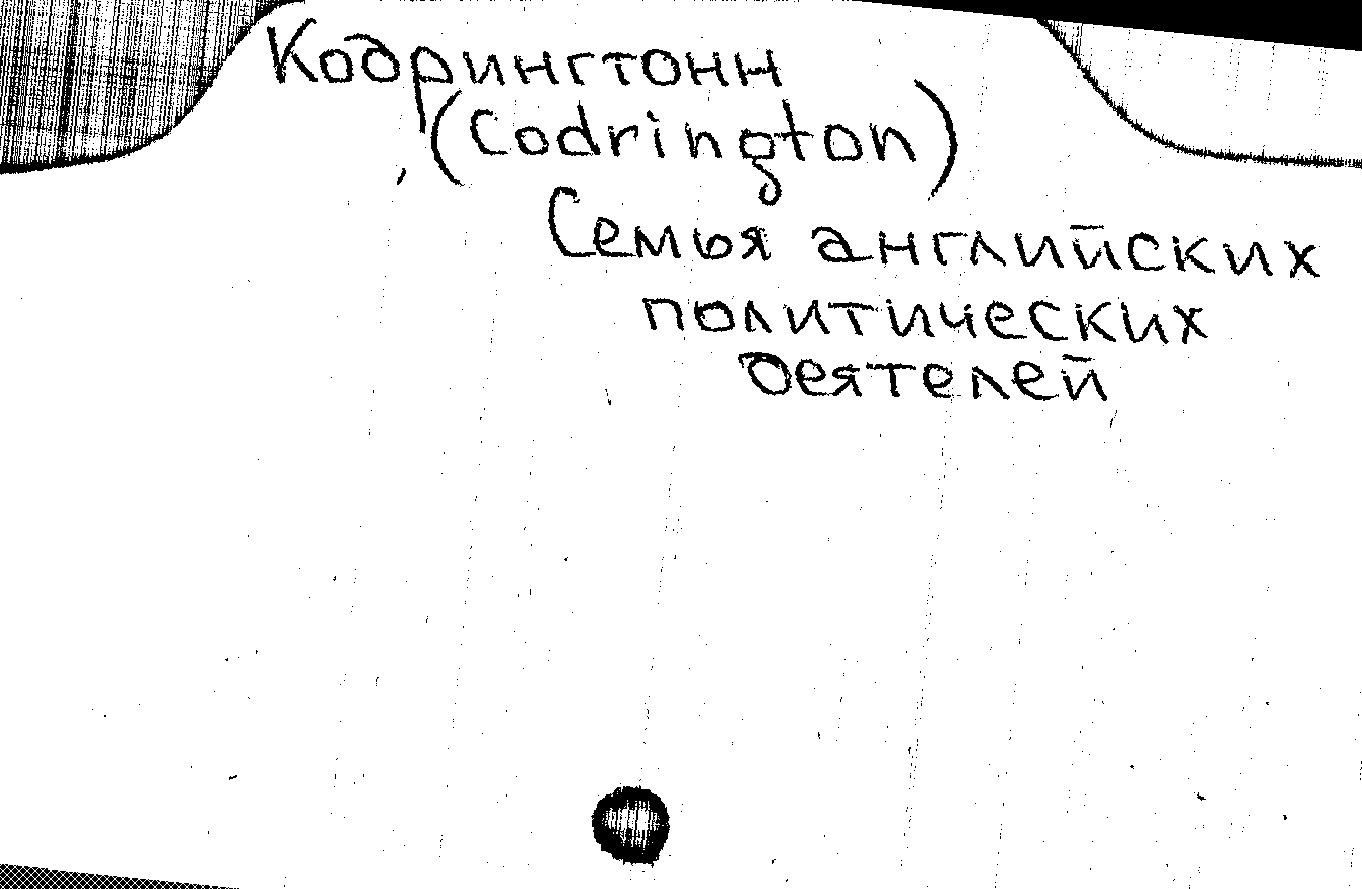 Кодрингтонн
(Codrington)
Семья английских
политических
деятелей